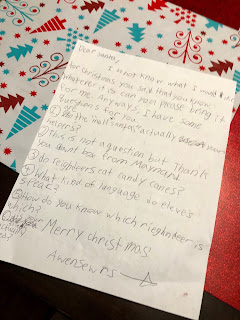 Dear Santa,
I do not know what I would
for Christmas you said that you knew
whatever it is can you please bring it
for me. anyways, I have some
questions for you
① are the mall santas actually your
helpers?
② This is not a question but Thanks
you
③ do reighnteers eat candy canes?
④ what kind of language do eleve's
speak?
⑤ How do you know which rieghndeer is
which?
Merry christmas
Answers